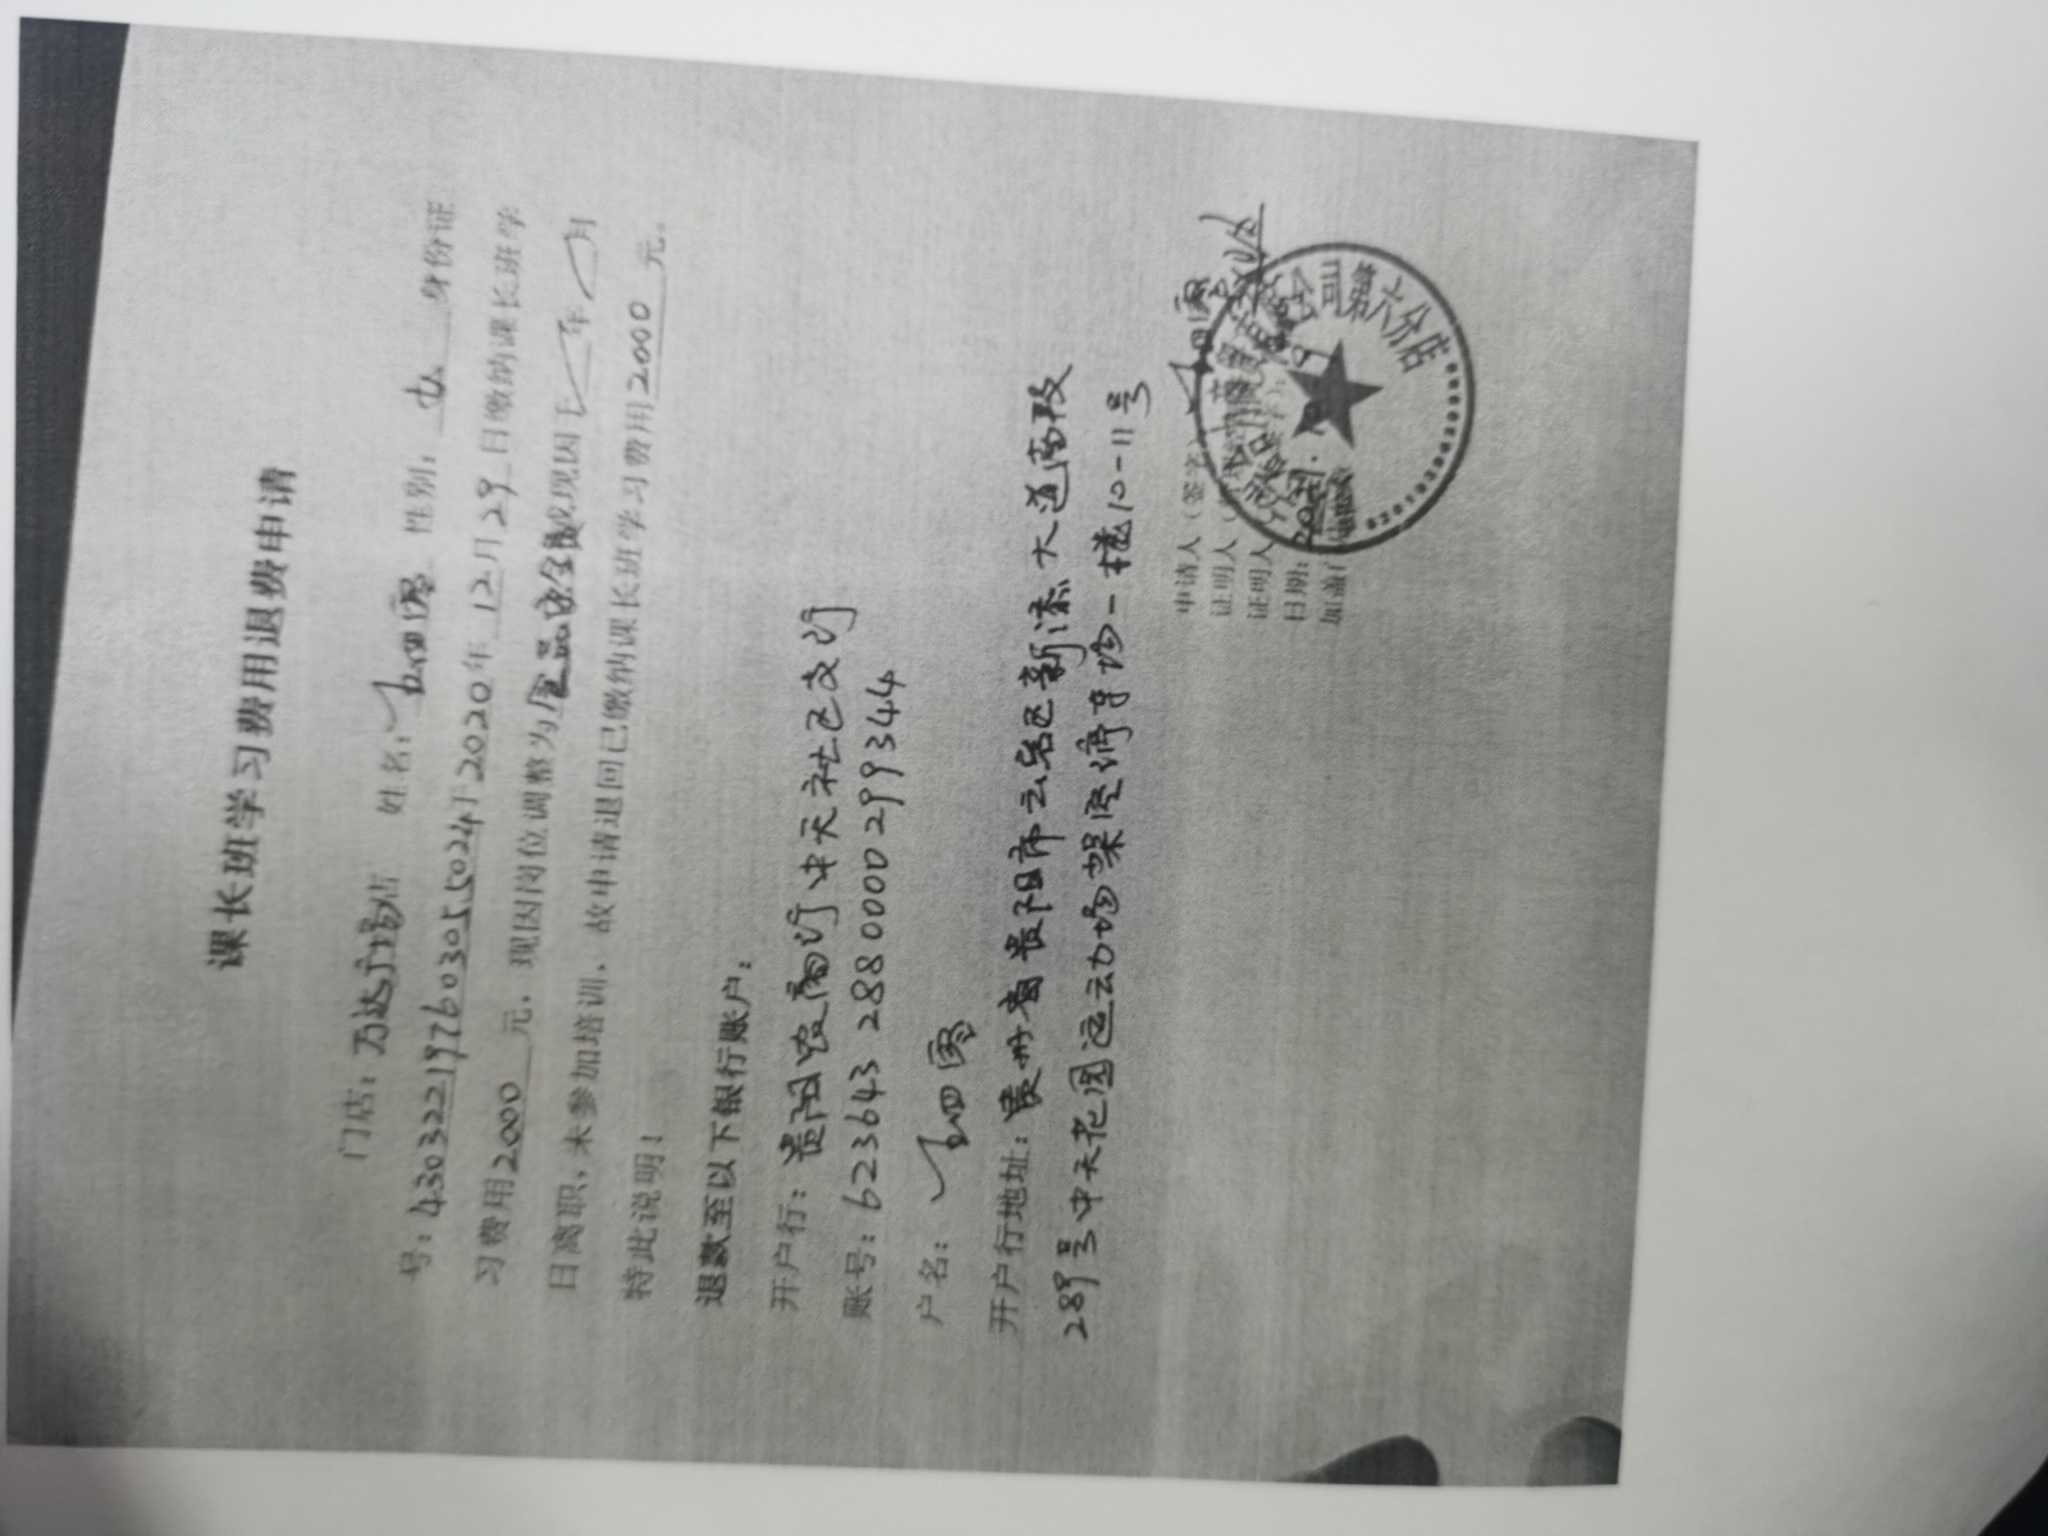 课长班学习费用退费申请
门店：万达广场店 姓名： 四 性别：女 身份证
号：430322197603055024于2020年12月29日缴纳课长班学
习费用2000元，现因岗位调整为食品安全 现因于 年 月
日离职，未参加培训，故申请退回已缴纳课长班学习费用2000元。
特此说明！
退款至以下银行账户：
开户行：贵阳农商行中天社区支行
账号：623643 2880000299344
户名： 四
开户行地址：贵州省贵阳市云岩区新添大道南段
289号中天花园运动场架空停车场一楼10-11号
申请人（签字）
证明人（
证明人
日期：
加盖
公司第六分店